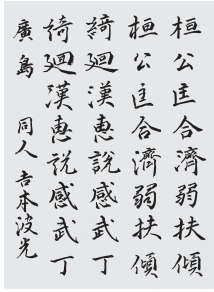 桓公匡合濟弱扶傾
桓公匡合濟弱扶傾
綺迴漢惠説感武丁
綺迴漢惠説感武丁
廣島 同人 吉本波光